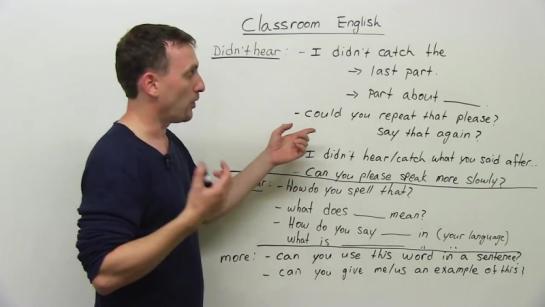 Classroom English
Didn't hear: - I didn't catch the
→ last part.
→ part about ____.
- could you repeat that please?
say that again?
I didn't hear/catch what you said after..
- Can you please speak more slowly?
ar: - How do you spell that?
- what does ____ mean?
- How do you say ____ in (your language)
what is ________ " "
more: - can you use this word in a sentence?
- can you give me/us an example of this?